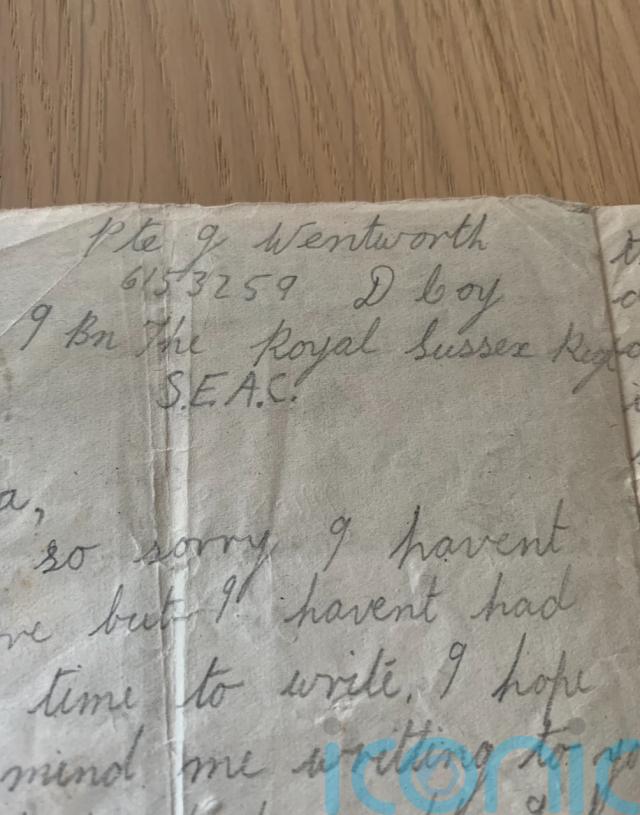 Pte G Wentworth
6153259 D Coy
9 Bn The Royal Sussex Regt
S.E.A.C.
a,
so sorry I havent
but I havent had
time to write, I hope
mind me writting to
iconic